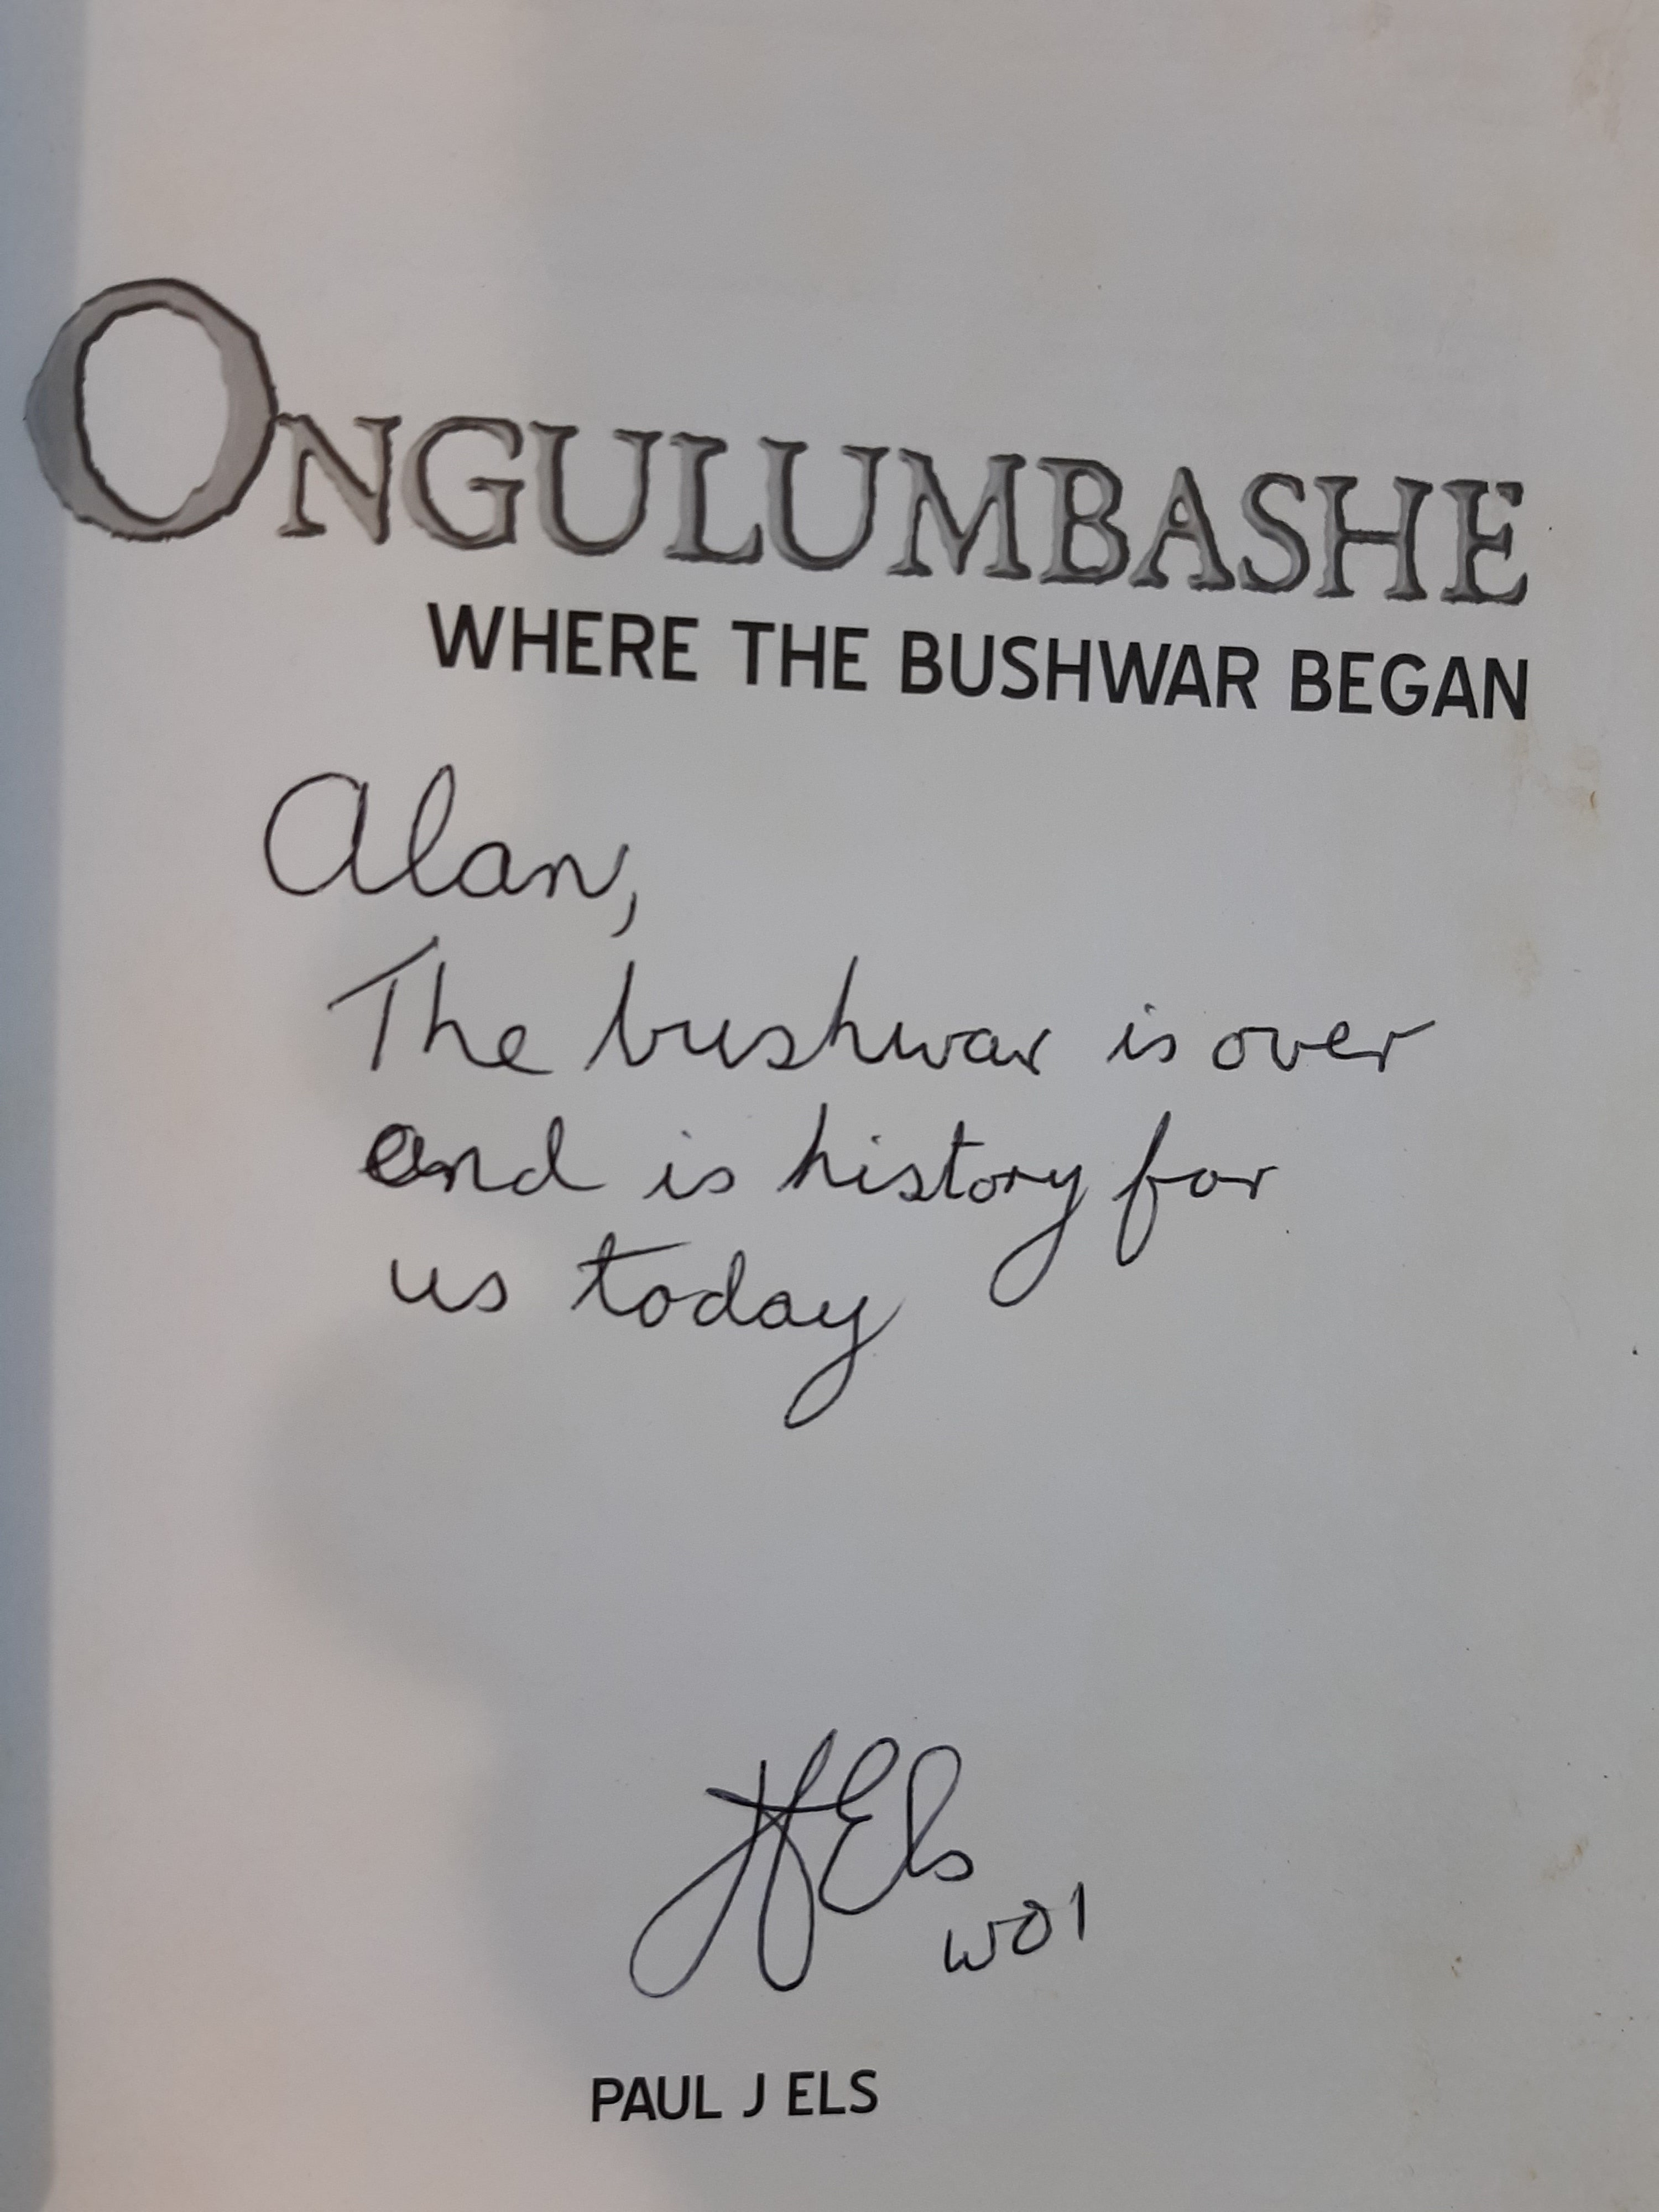 ONGULUMBASHE
WHERE THE BUSHWAR BEGAN
Alan,
The bushwar is over
and is history for
us today
Els
WO1
PAUL J ELS